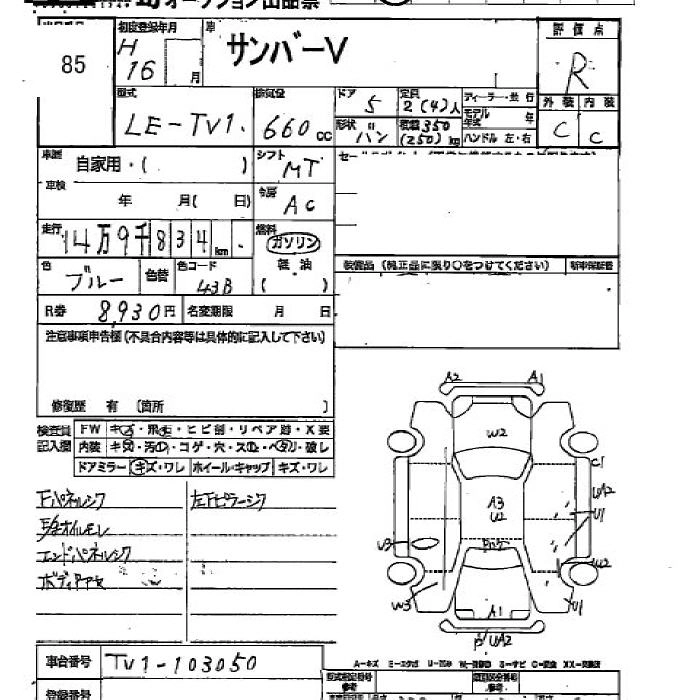 オークション出品票
85
初度登録年月
H
16 月
車
サンバーV
評価点
R
型式
LE-TV1.
排気量
660cc
ドア 5
定員 2(4)人
ディーラー・並行
モデル年式 年
ハンドル 左・右
形状 バン
積載 350
(250)kg
外装 内装
C C
車歴
自家用・( )
シフト
MT
車検
年 月( 日)
冷房
AC
走行
14万9千834km
燃料
ガソリン
軽油
( )
色
ブルー
色替
色コード
43B
装備品(純正品に限り○をつけてください)
新車保証書
R券 8,930円
名変期限 月 日
注意事項申告欄(不具合内容等は具体的に記入して下さい)
修復歴 有 〔箇所 〕
検査員
記入欄
FW キズ・飛石・ヒビ割・リペア跡・X要
内装 キズ・汚れ・コゲ・穴・スレ・ベタリ・破レ
ドアミラー キズ・ワレ ホイール・キャップ キズ・ワレ
Fパネルシワ
左Fピラージワ
エンドパネルシワ
A2 A1
W2
C1
A3
U2
UA2
U1
U3
W2
W3
A1
U1
UA2
車台番号 TV1-103050
登録番号